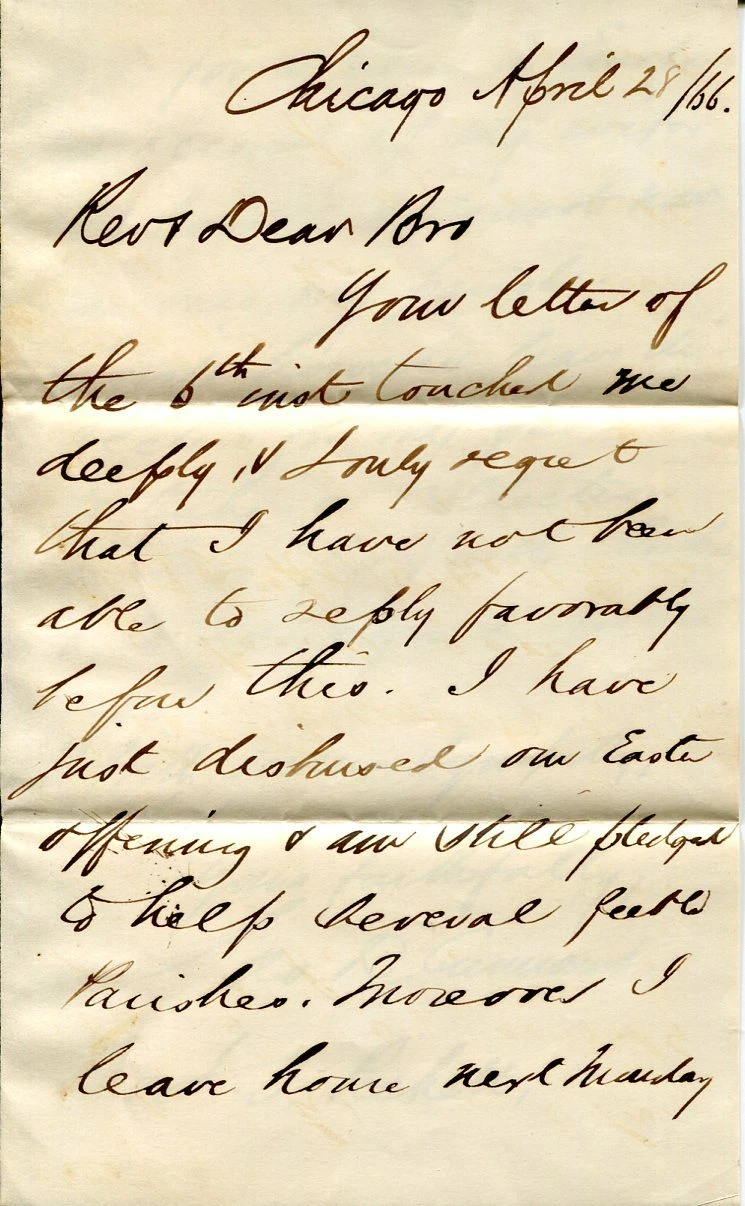 Chicago April 28/66.
Revd Dear Bro
Your letter of
the 6th inst touched me
deeply, & I only regret
that I have not been
able to reply favorably
before this. I have
just disbursed our Easter
offering & am still pledged
to help several feeble
Parishes. Moreover I
leave home next Monday